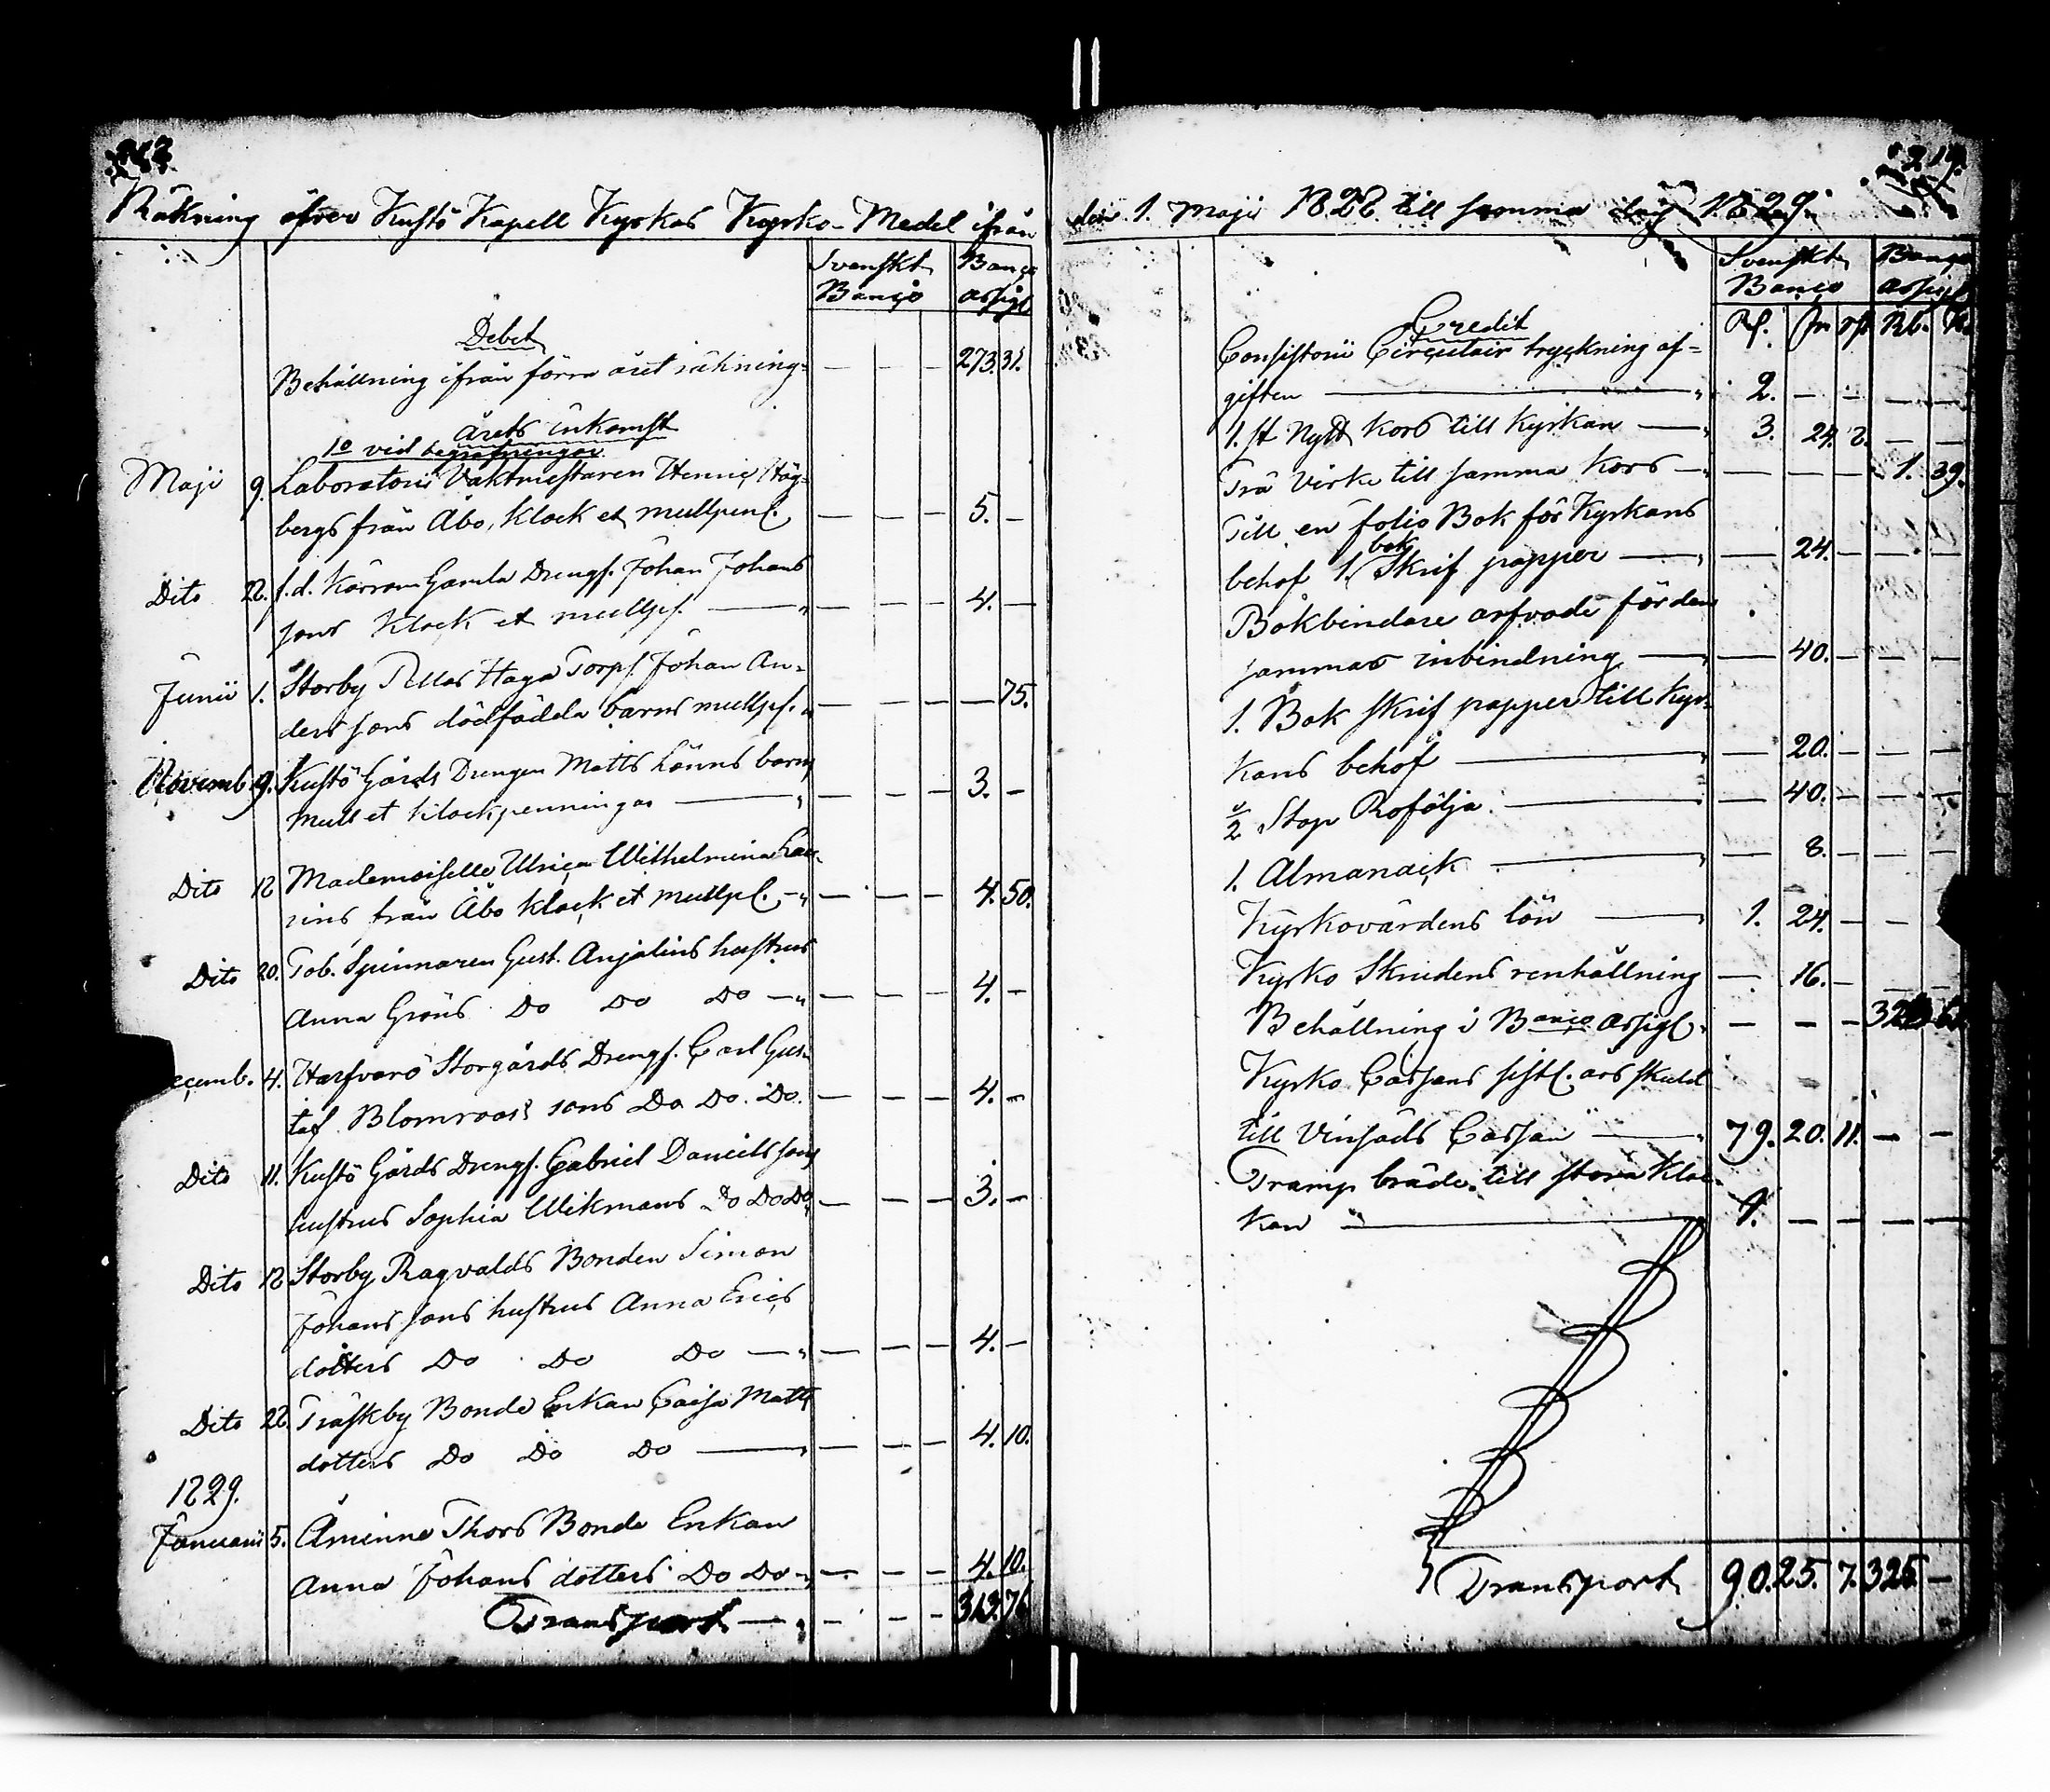 Räkning öfver Kustö Kapell Kyrkas Kyrko-Medel ifrån
Svenskt Banco
Banco assigt
Debet
Behållning ifrån förra året räkning- — — — 273. 31.
Årets inkomst
1o vid begrafningar
Maji 9. Laboratorii Vaktmestaren Henric Hög-
bergs från Åbo, klock et mullpen. — — — 5. —
Dito 22. f.d. Kärrom Gamla Drengs. Johan Johans
sons klock et mullp. — — — 4. —
Junii 1. Storby Pellas Haga Torps. Johan An-
ders sons dödfödda barns mullp. — — — — 75.
Novemb. 9. Kustö Gårds Drengen Matts Lönns barns
mull et klockpenningar — — — 3. —
Dito 12 Mademoiselle Ulrica Wilhelmina Lau-
rins från Åbo klock et mullp. — — — 4. 50.
Dito 20. Tob. Spinnaren Gust. Anjalins hustrus
Anna Gröns Do Do Do — — — 4. —
ecemb. 4. Harfvarö Storgårds Drengs. Carl Gus-
taf Blomroos sons Do. Do. Do. — — — 4. —
Dito 11. Kustö Gårds Drengs. Gabriel Daniels sons
hustrus Sophia Wikmans Do Do Do — — — 3. —
Dito 12 Storby Ragvalds Bonden Simon
Johans sons hustrus Anna Erics
dotters Do Do Do — — — 4. —
Dito 22. Träskby Bonde Enkan Caisa Matts
dotters Do Do Do — — — 4. 10.
1829.
Januarii 5. Åminne Thors Bonde Enkan
Anna Johans dotters Do Do — — — 4. 10.
Transport — — — 313. 76
219.
den 1. Maji 1828. till samma dag 1829.
Svenskt Banco
Banco assigt
Credit
R. sk rst Rb. K.
Consistorii Circulair tryckning af-
giften 2. — — — —
1. st Nytt kors till Kyrkan 3. 24. 8. — —
Trä virke till samma kors — — — 1. 39.
Till en folio Bok för Kyrkans
behof 1. bok Skrif papper — 24. — — —
Bokbindare arfvode för den
sammas inbindning — 40. — — —
1. Bok skrif papper till Kyr-
kans behof — 20. — — —
1/2 Stop Rofölja — 40. — — —
1. Almanack — 8. — — —
Kyrkovärdens lön 1. 24. — — —
Kyrko Skrudens renhållning — 16. —
Behållning i Banco Assig. — — —
Kyrko Cassans sistl. års skuld
till Vinsäds Cassan 79. 20. 11. — —
Tramp bräde till stora kloc-
kan 1. — — — —
Transport 90. 25. 7. 325. —